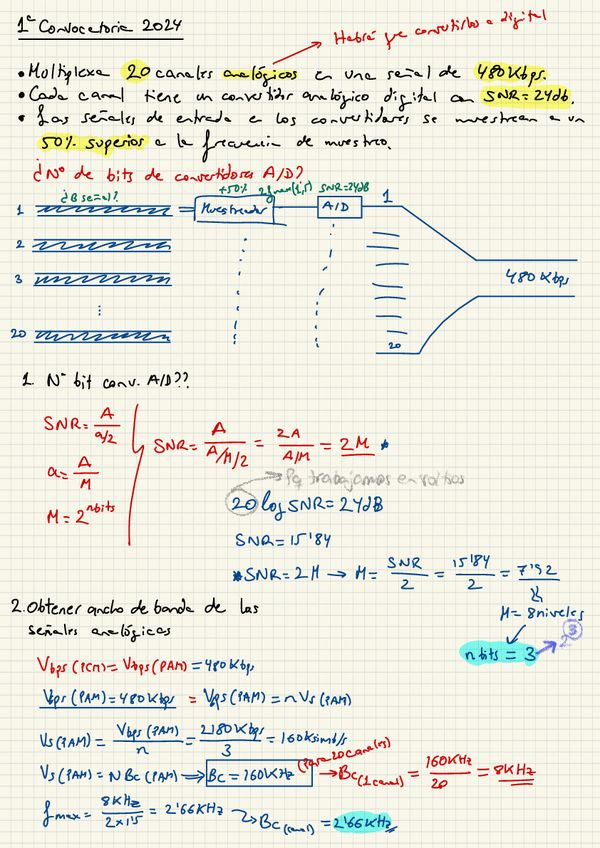 1ª Convocatoria 2024
Habrá que convertirlos a digital
• Multiplexa 20 canales analógicos en una señal de 480Kbps.
• Cada canal tiene un convertidor analógico digital con SNR=24db.
• Las señales de entrada a los convertidores se muestrean a un
50% superior a la frecuencia de muestreo.
¿Nº de bits de convertidores A/D?
¿B señal?
+50%
SNR=24dB
1
Muestreador
A/D
1
2
3
480 Kbps
20
20
1. Nº bit conv. A/D??
SNR = A / a/2
a = A / M
M = 2^nbits
SNR = A / A/M/2 = 2A / A/M = 2M *
Pq trabajamos en voltios
20 log SNR = 24dB
SNR = 15'84
*SNR = 2M → M = SNR / 2 = 15'84 / 2 = 7'92
M = 8 niveles
n bits = 3 → 2^3
2. Obtener ancho de banda de las
señales analógicas
Vbps (PCM) = Vbps (PAM) = 480 Kbps
Vbps (PAM) = 480 Kbps = Vbps (PAM) = n Vs (PAM)
Vs (PAM) = Vbps (PAM) / n = 480 Kbps / 3 = 160 Ksimb/s
Vs (PAM) = N Bc (PAM) → Bc = 160 KHz (para 20 canales) → Bc (1 canal) = 160 KHz / 20 = 8 KHz
fmax = 8 KHz / 2x1'5 = 2'66 KHz → Bc (canal) = 2'66 KHz